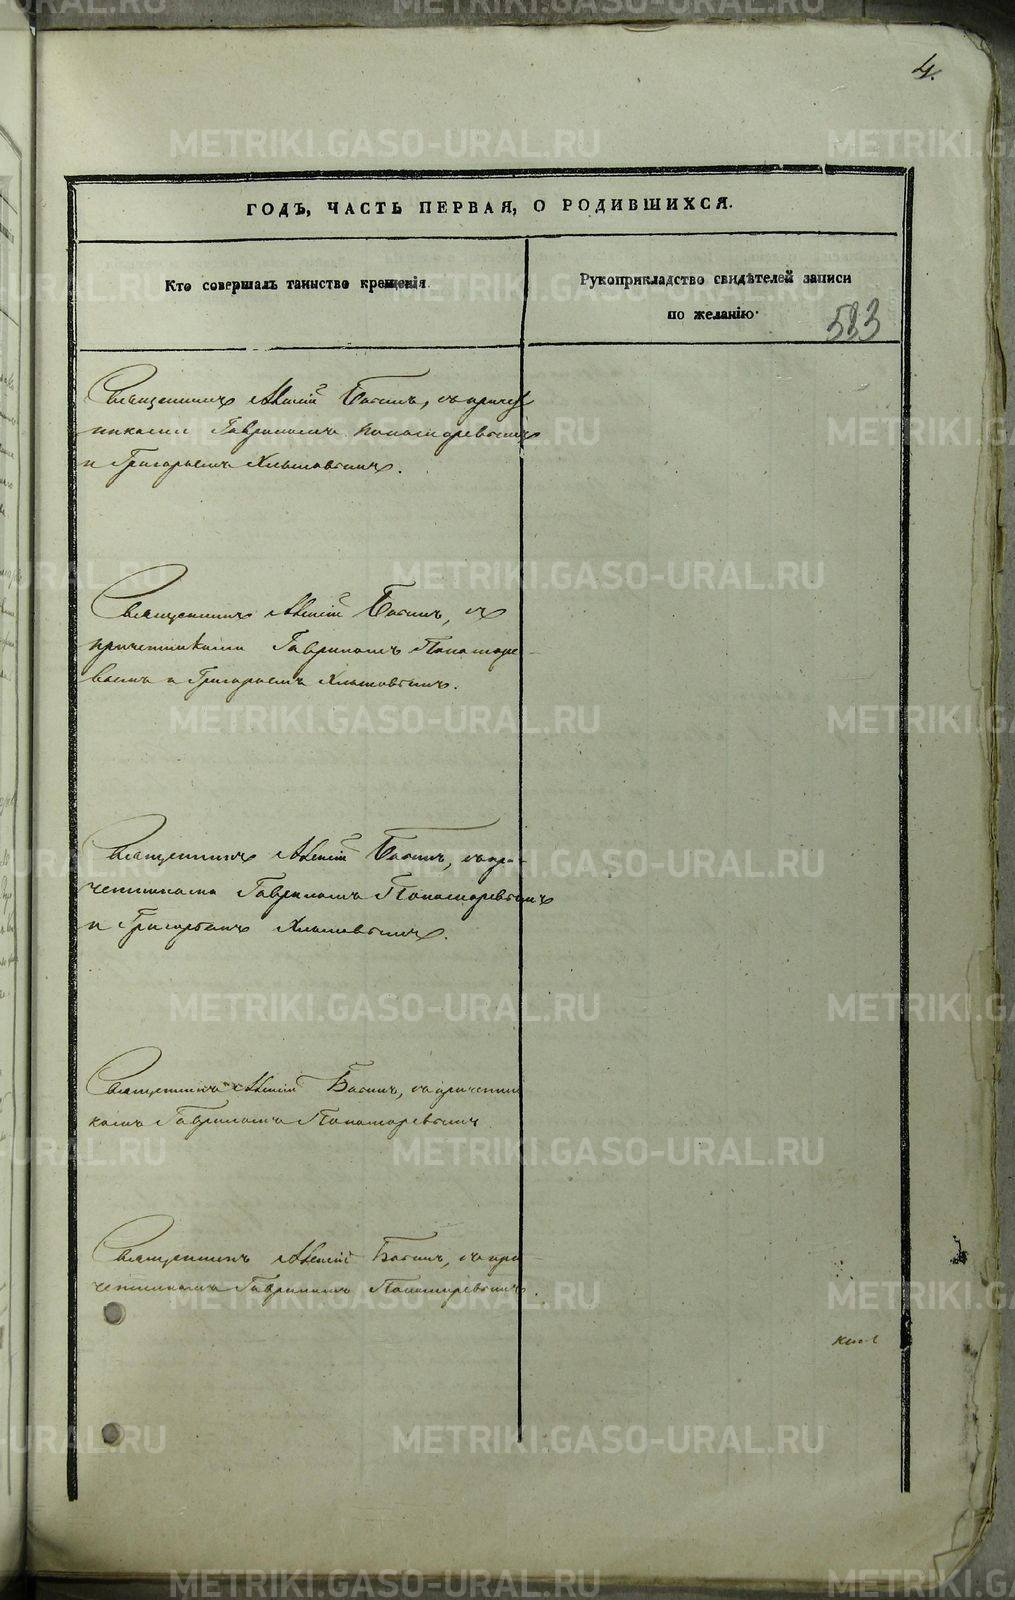 4.
ГОДЪ, ЧАСТЬ ПЕРВАЯ, О РОДИВШИХСЯ.
Кто совершалъ таинство крещенія.
Рукоприкладство свидѣтелей записи
по желанію.
583
Священникъ Алексій Бабинъ, съ причет
никами Гавриломъ Пономаревымъ
и Григорьемъ Хлыновымъ.
Священникъ Алексій Бабинъ, съ
причетниками Гавриломъ Пономаре-
вымъ и Григорьемъ Хлыновымъ.
Священникъ Алексій Бабинъ, съ при-
четниками Гавриломъ Пономаревымъ
и Григорьемъ Хлыновымъ.
Священникъ Алексій Бабинъ, съ причетни
комъ Гавриломъ Пономаревымъ
Священникъ Алексій Бабинъ, съ при
четникомъ Гавриломъ Пономаревымъ.
METRIKI.GASO-URAL.RU